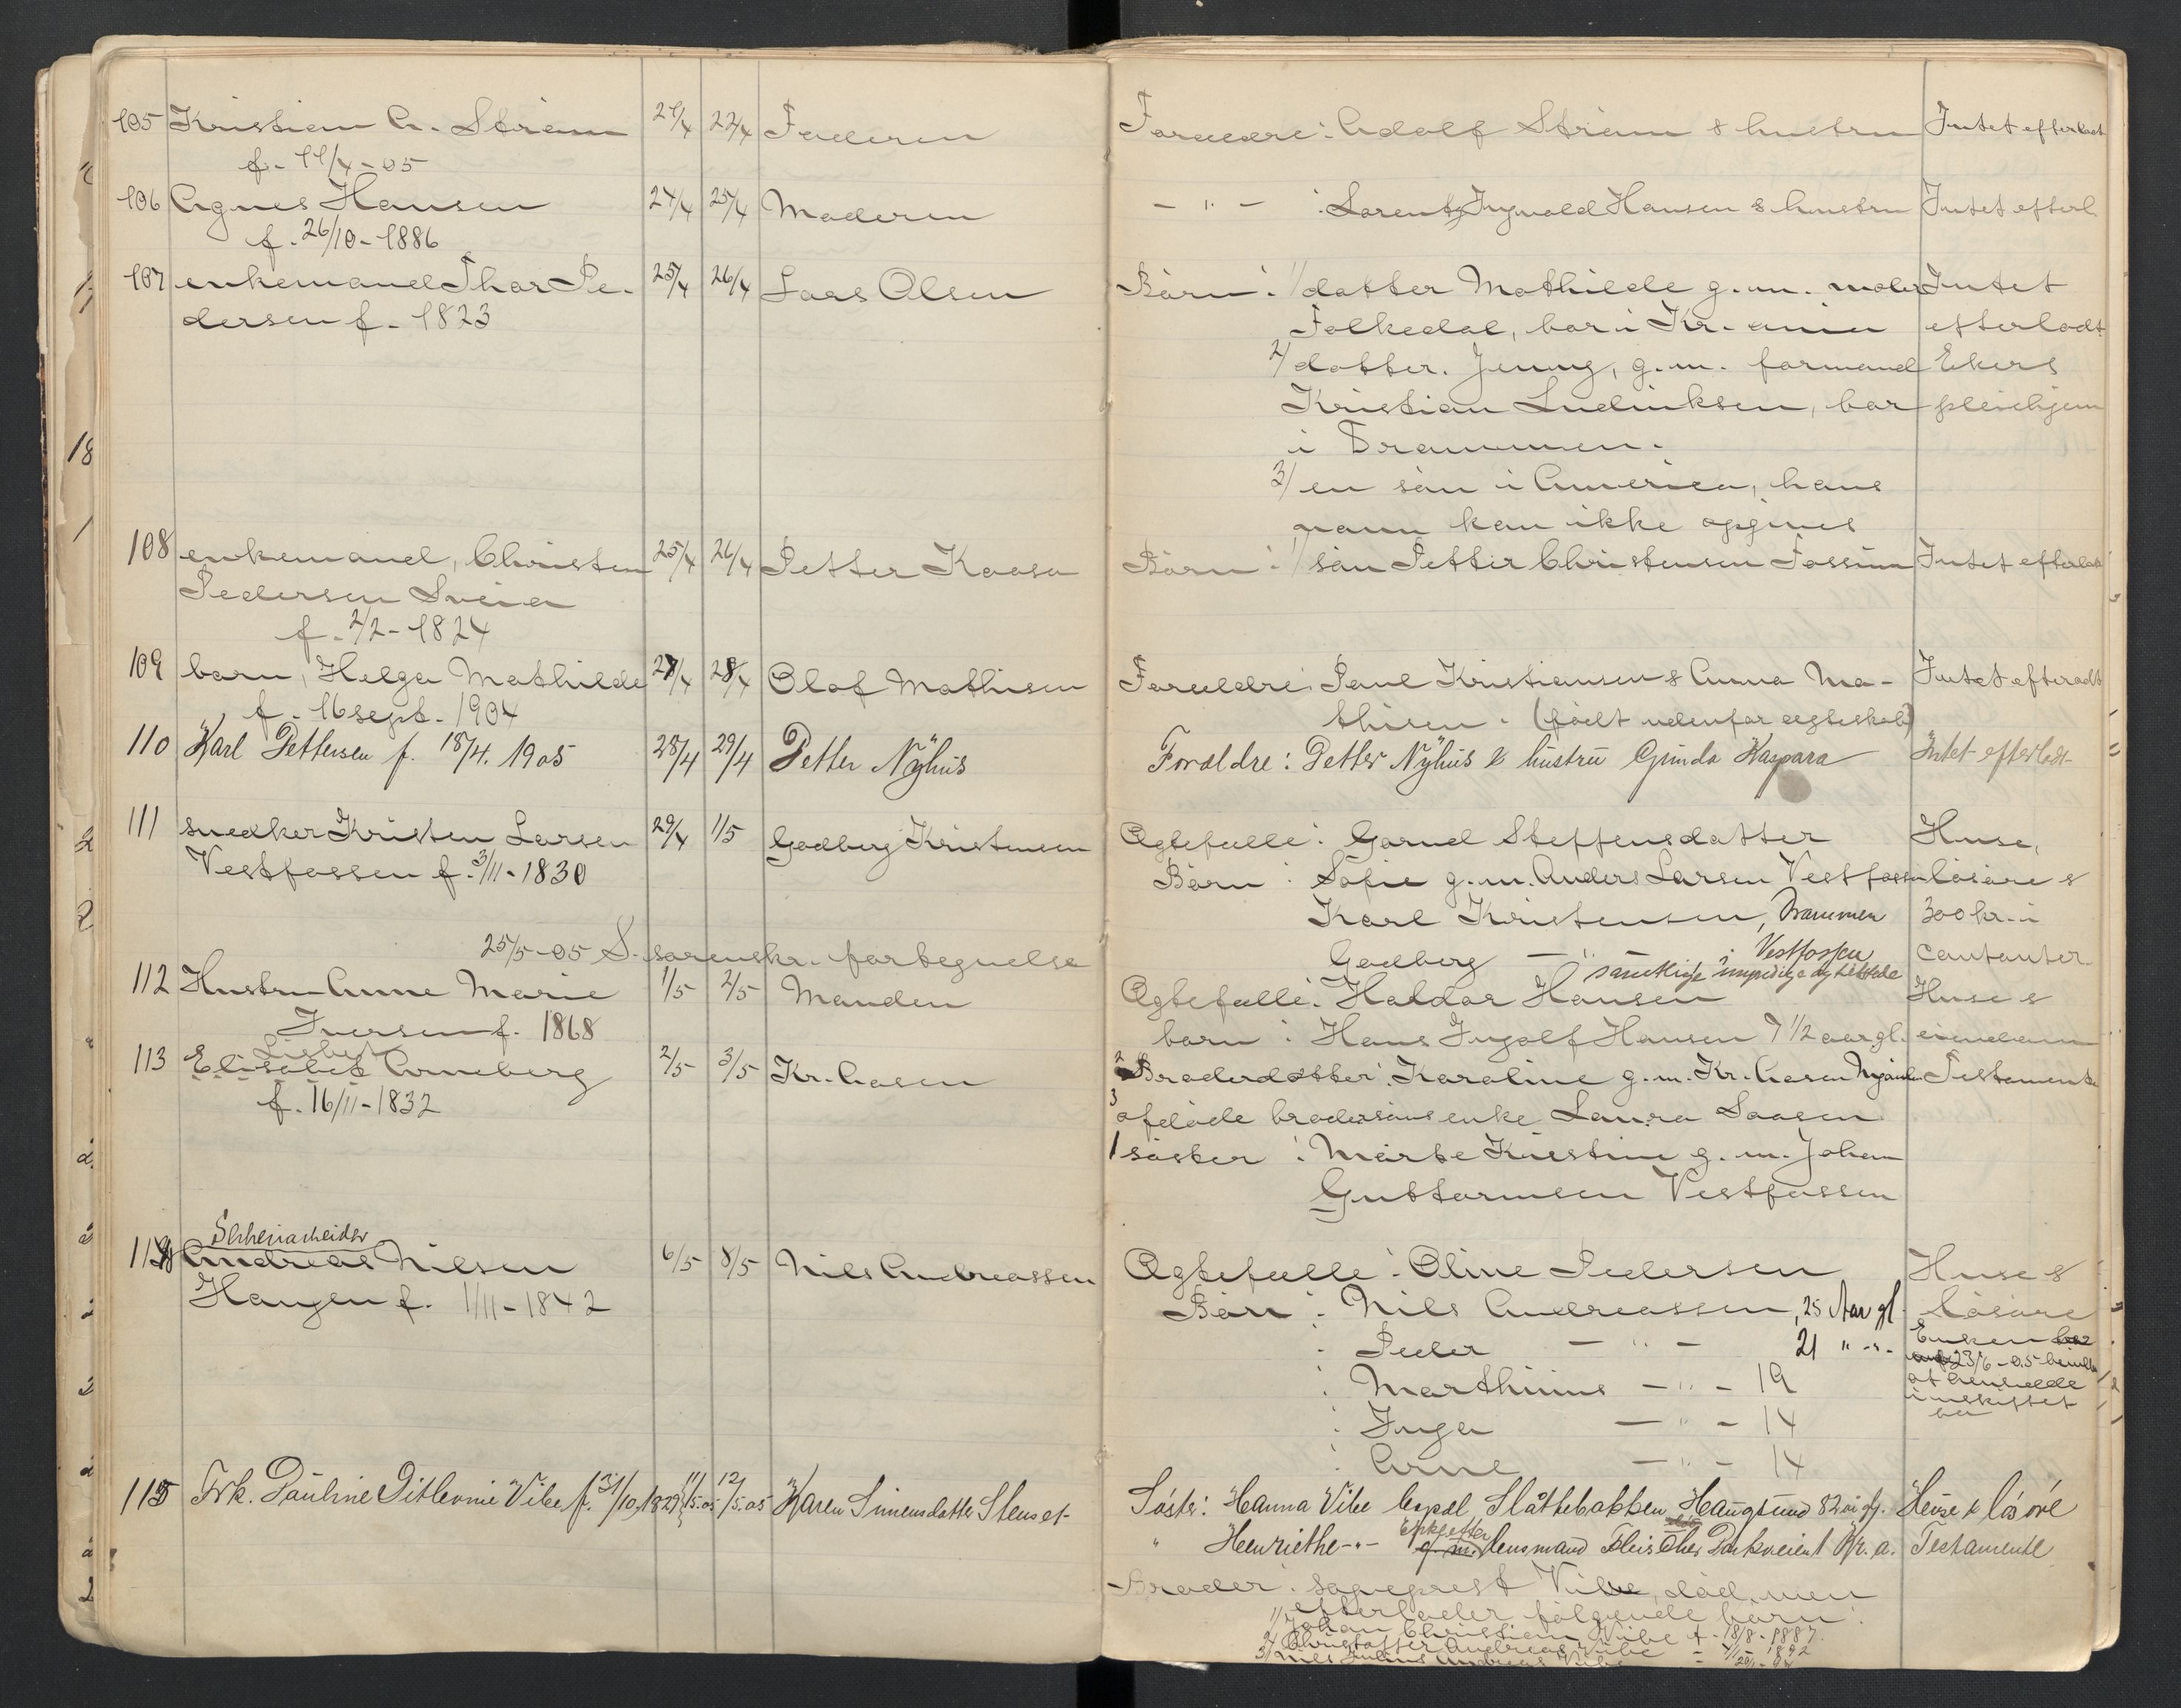 105 Kristian A. Strøm 21/4 22/4 Faderen Forældre: Adolf Strøm & hustru Intet efterladt
f. 11/4-05
106 Agnes Hansen 24/4 25/4 Moderen - " - : Lorentz Ingvald Hansen & hustru Intet efterl.
f. 26/10-1886
107 enkemand Thor Pe- 25/4 26/4 Lars Olsen Børn: 1/ datter Mathilde g.m. maler Intet
dersen f. 1823 Folkedal, bor i Kr.ania efterladt
2/ datter. Jenny, g.m. formand Ekers
Kristian Ludviksen, bor pleiehjem
i Drammen.
3/ en søn i America, hans
navn kan ikke opgives
108 enkemand, Christen 25/4 26/4 Petter Kaasa Børn: 1/ søn Petter Christensen Fossum Intet efterladt
Pedersen Sveia
f. 2/2-1824
109 barn, Helga Mathilde 27/4 28/4 Olaf Mathisen Forældre: Paul Kristiansen & Anna Ma- Intet efterladt
f. 16 sept. 1904 thisen. (født udenfor ægteskab)
110 Karl Pettersen f. 18/4. 1905 28/4 29/4 Petter Nyhus Forældre: Petter Nyhus & hustru Gunda Kaspara Intet efterladt
111 snedker Kristen Larsen 29/4 1/5 Godberg Kristensen Ægtefælle: Gorned Steffensdatter Huse,
Vestfossen f. 3/11-1830 Børn: Sofie g.m. Anders Larsen Vestfossen løsøre &
Karl Kristensen, Drammen 300 kr. i
Godberg - " - i Vestfossen contanter
25/5-05 S. sorenskr. fortegnelse samtlige myndige og tilstede
112 Hustru Anne Marie 1/5 2/5 Manden Ægtefælle: Haldor Hansen Huse &
Iversen f. 1868 barn: Hans Ingolf Hansen 7 1/2 aar gl. eiendom
Lisbet
113 Elisabet Arneberg 2/5 3/5 Kr. Aasen 2 Broderdatter: Karoline g.m. Kr. Aasen Testamente
f. 16/11-1832 3 afdøde brodersøns enke Laura Saasen
1 søster: Marte Kirstine g.m. Johan
Guttormsen Vestfossen
114 Andreas Nilsen 6/5 8/5 Nils Andreassen Ægtefælle: Oline Pedersen Huse &
Haugen f. 1/11-1842 Børn: Nils Andreassen, 25 Aar gl. løsøre
: Peder - " - 21 " -"- Enken
: Marthinius - " - 19 23/6-05
: Inga - " - 14 at hensidde
: Arne - " - 14 i uskiftet bo
115 Frk. Pauline Ditlevine Vibe f. 31/10 1829 11/5.05 12/5.05 Karen Simensdatter Stenset Søster: Hanna Vibe Slåttebakken Haugsund 82 år gl. Huse & løsøre
" Henriethe -"- Enke efter g.m. lensmand Fleischer Parkveien 1 Kr.a. Testamente
Broder: sogneprest Vibe, død, men
efterlader følgende børn:
1/ Johan Christian Vibe f. 18/8-1887
2/ Christoffer Andreas Vibe - 1892
3/ Nils Julius Andreas Vibe